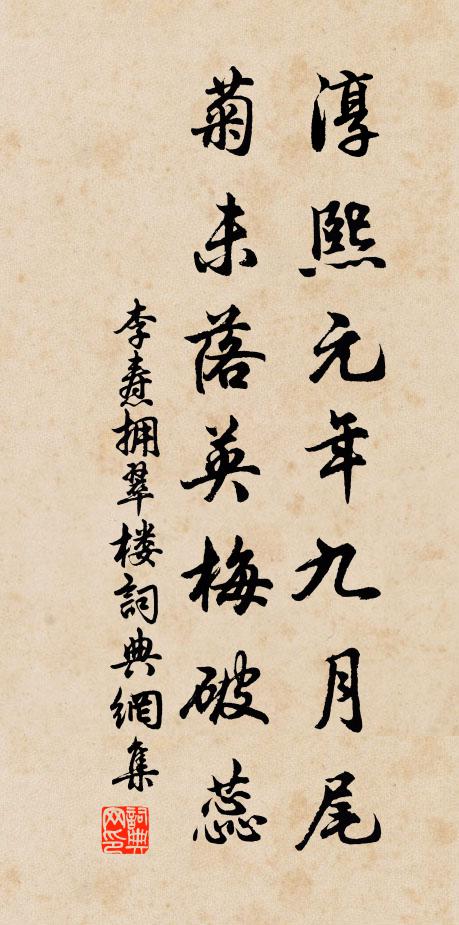 淳熙元年九月尾
菊未落英梅破蕊
李焘拥翠楼詞典網集
詞典网印